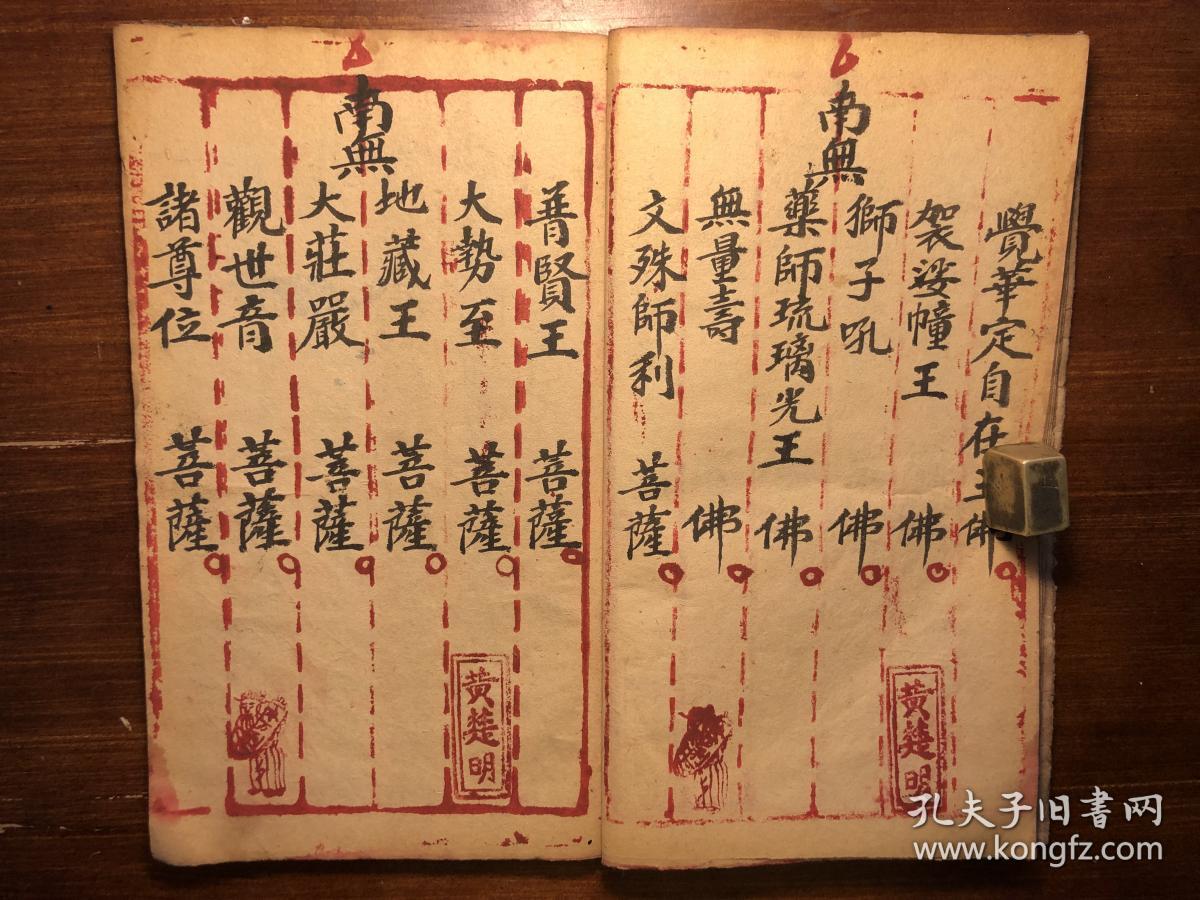 南無
覺華定自在王佛
袈裟幢王佛
獅子吼佛
藥師琉璃光王佛
無量壽佛
文殊師利菩薩
黃楚明
南無
普賢王菩薩
大勢至菩薩
地藏王菩薩
大莊嚴菩薩
觀世音菩薩
諸尊位菩薩
黃楚明
孔夫子旧书网
www.kongfz.com